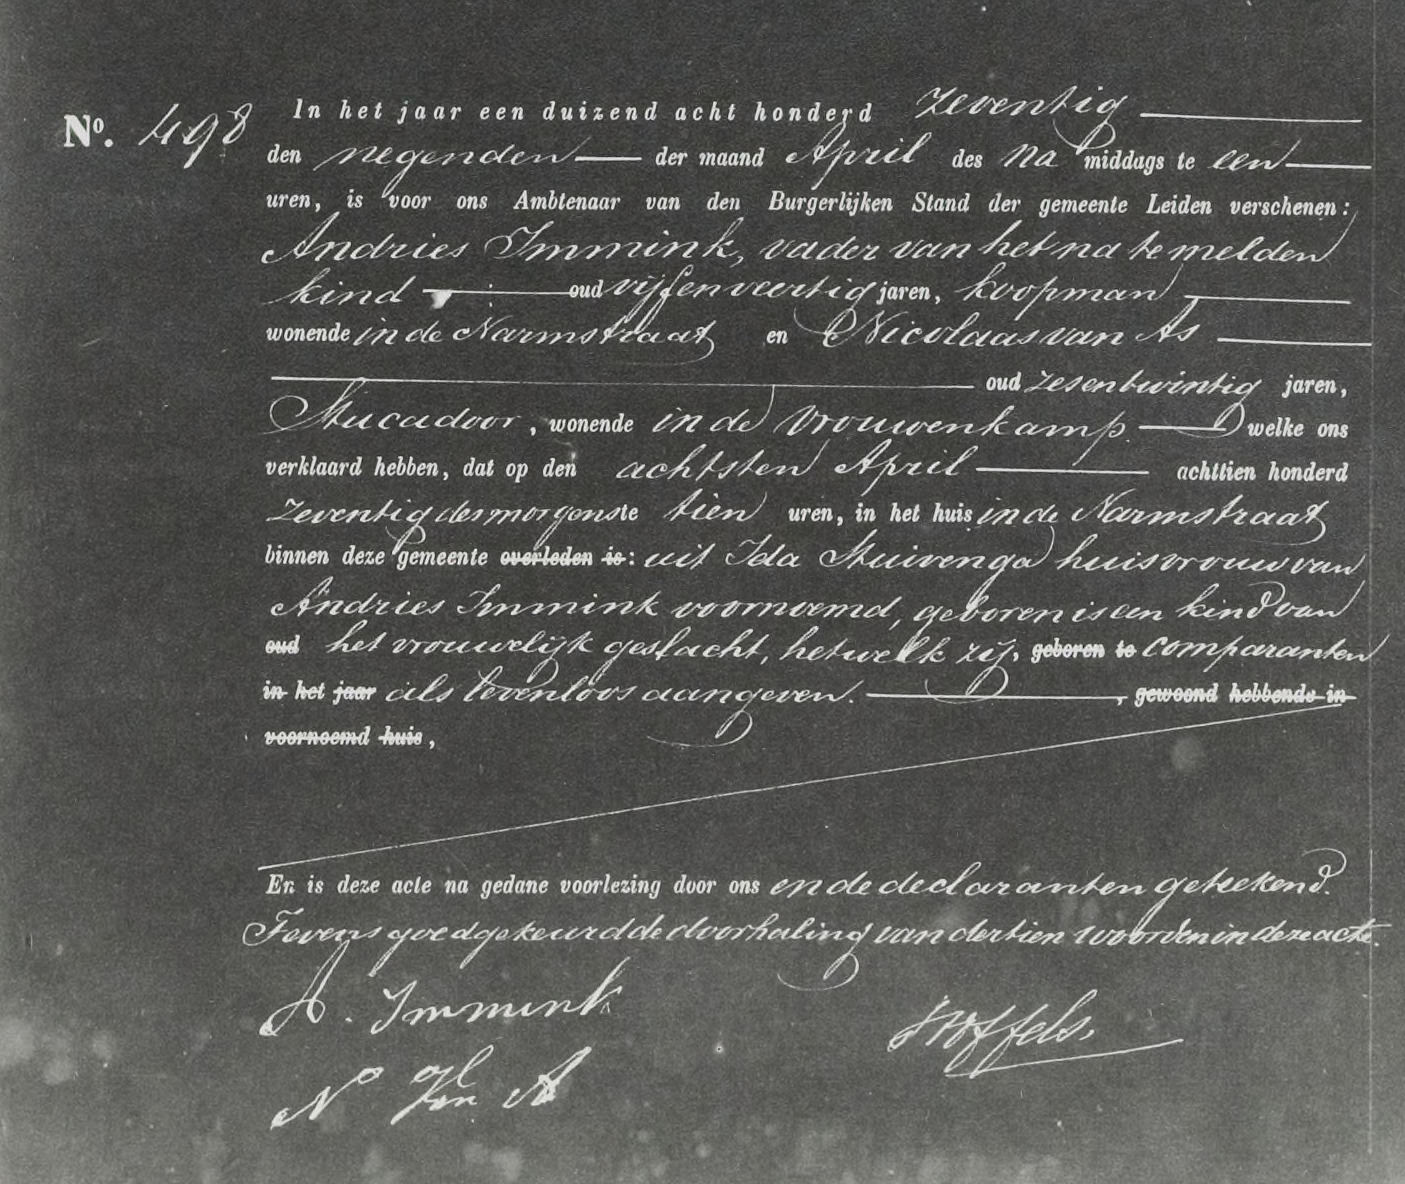 No. 498 In het jaar een duizend acht honderd zeventig
den negenden der maand April des na middags te een
uren, is voor ons Ambtenaar van den Burgerlijken Stand der gemeente Leiden verschenen:
Andries Immink, vader van het na te melden
kind oud vijfenveertig jaren, koopman
wonende in de Narmstraat en Nicolaas van As
oud zesentwintig jaren,
Stucadoor, wonende in de Vrouwenkamp welke ons
verklaard hebben, dat op den achtsten April achttien honderd
zeventig des morgenste tien uren, in het huis in de Narmstraat
binnen deze gemeente overleden is: uit Ida Stuivenga huisvrouw van
Andries Immink voornoemd, geboren is een kind van
oud het vrouwelijk geslacht, hetwelk zij, geboren te comparanten
in het jaar als levenloos aangeven. , gewoond hebbende in
voornoemd huis,
En is deze acte na gedane voorlezing door ons en de declaranten geteekend.
Tevens goedgekeurd de doorhaling van dertien woorden in deze acte.
A. Immink
Stoffels.
N van A